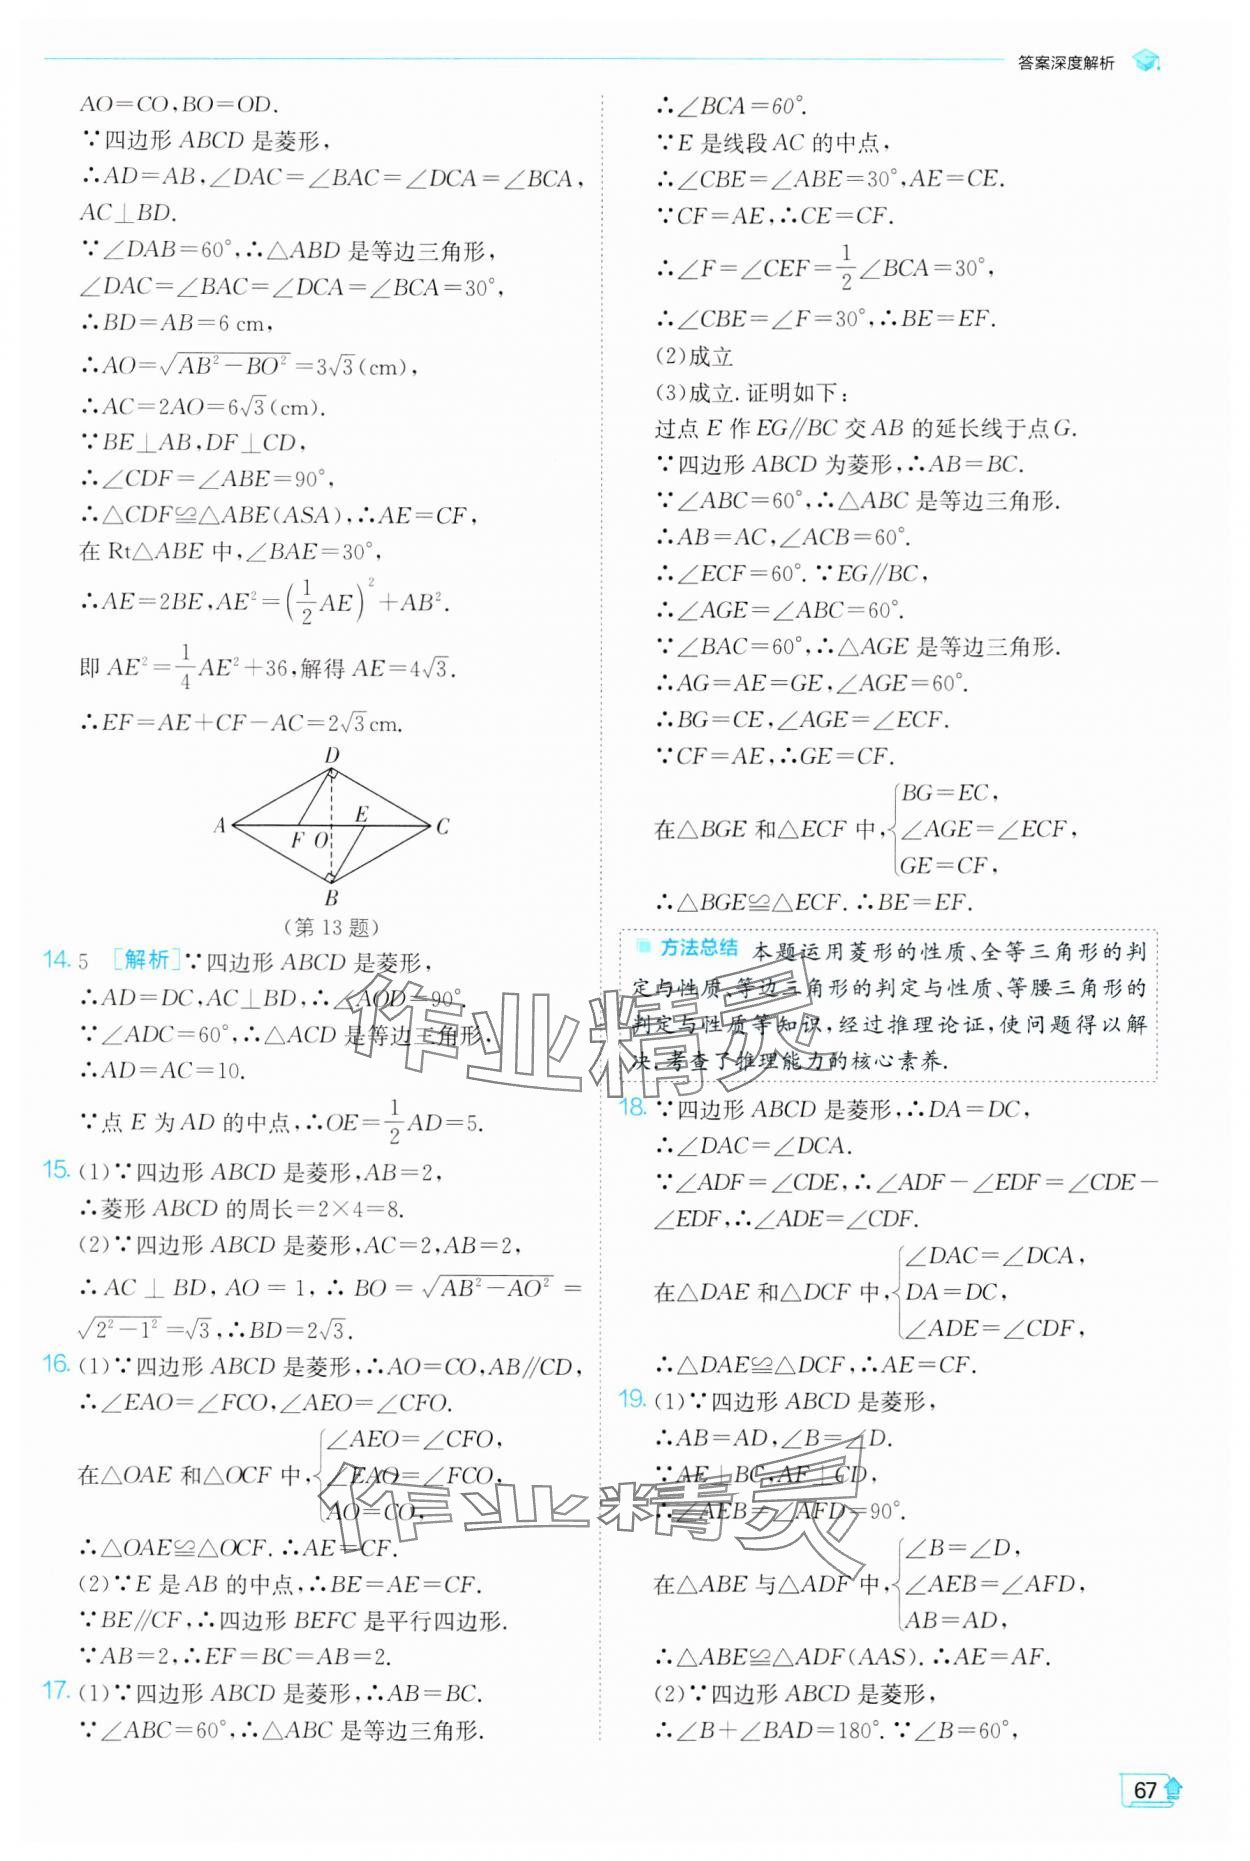 答案深度解析
AO=CO,BO=OD.
∵四边形 ABCD 是菱形,
∴AD=AB,∠DAC=∠BAC=∠DCA=∠BCA,
AC⊥BD.
∵∠DAB=60°,∴△ABD 是等边三角形,
∠DAC=∠BAC=∠DCA=∠BCA=30°,
∴BD=AB=6 cm,
∴AO=√(AB²-BO²)=3√3(cm),
∴AC=2AO=6√3(cm).
∵BE⊥AB,DF⊥CD,
∴∠CDF=∠ABE=90°,
∴△CDF≌△ABE(ASA),∴AE=CF,
在 Rt△ABE 中,∠BAE=30°,
∴AE=2BE,AE²=(1/2 AE)²+AB².
即 AE²=1/4 AE²+36,解得 AE=4√3.
∴EF=AE+CF-AC=2√3cm.
D
A F O E C
B
(第 13 题)
14. 5 [解析]∵四边形 ABCD 是菱形,
∴AD=DC,AC⊥BD,∴∠AOD=90°.
∵∠ADC=60°,∴△ACD 是等边三角形.
∴AD=AC=10.
∵点 E 为 AD 的中点,∴OE=1/2 AD=5.
15. (1)∵四边形 ABCD 是菱形,AB=2,
∴菱形 ABCD 的周长=2×4=8.
(2)∵四边形 ABCD 是菱形,AC=2,AB=2,
∴AC⊥BD,AO=1,∴BO=√(AB²-AO²)=
√(2²-1²)=√3,∴BD=2√3.
16. (1)∵四边形 ABCD 是菱形,∴AO=CO,AB∥CD,
∴∠EAO=∠FCO,∠AEO=∠CFO.
在△OAE 和△OCF 中,{∠AEO=∠CFO,
∠EAO=∠FCO,
AO=CO,
∴△OAE≌△OCF.∴AE=CF.
(2)∵E 是 AB 的中点,∴BE=AE=CF.
∵BE∥CF,∴四边形 BEFC 是平行四边形.
∵AB=2,∴EF=BC=AB=2.
17. (1)∵四边形 ABCD 是菱形,∴AB=BC.
∵∠ABC=60°,∴△ABC 是等边三角形.
∴∠BCA=60°.
∵E 是线段 AC 的中点,
∴∠CBE=∠ABE=30°,AE=CE.
∵CF=AE,∴CE=CF.
∴∠F=∠CEF=1/2∠BCA=30°,
∴∠CBE=∠F=30°,∴BE=EF.
(2)成立
(3)成立.证明如下:
过点 E 作 EG∥BC 交 AB 的延长线于点 G.
∵四边形 ABCD 为菱形,∴AB=BC.
∵∠ABC=60°,∴△ABC 是等边三角形.
∴AB=AC,∠ACB=60°.
∴∠ECF=60°.∵EG∥BC,
∴∠AGE=∠ABC=60°.
∵∠BAC=60°,∴△AGE 是等边三角形.
∴AG=AE=GE,∠AGE=60°.
∴BG=CE,∠AGE=∠ECF.
∵CF=AE,∴GE=CF.
在△BGE 和△ECF 中,{BG=EC,
∠AGE=∠ECF,
GE=CF,
∴△BGE≌△ECF.∴BE=EF.
方法总结 本题运用菱形的性质、全等三角形的判
定与性质、等边三角形的判定与性质、等腰三角形的
判定与性质等知识,经过推理论证,使问题得以解
决,考查了推理能力的核心素养.
18. ∵四边形 ABCD 是菱形,∴DA=DC,
∴∠DAC=∠DCA.
∵∠ADF=∠CDE,∴∠ADF-∠EDF=∠CDE-
∠EDF,∴∠ADE=∠CDF.
在△DAE 和△DCF 中,{∠DAC=∠DCA,
DA=DC,
∠ADE=∠CDF,
∴△DAE≌△DCF,∴AE=CF.
19. (1)∵四边形 ABCD 是菱形,
∴AB=AD,∠B=∠D.
∵AE⊥BC,AF⊥CD,
∴∠AEB=∠AFD=90°.
在△ABE 与△ADF 中,{∠B=∠D,
∠AEB=∠AFD,
AB=AD,
∴△ABE≌△ADF(AAS).∴AE=AF.
(2)∵四边形 ABCD 是菱形,
∴∠B+∠BAD=180°.∵∠B=60°,
作业精灵
作业精灵
67